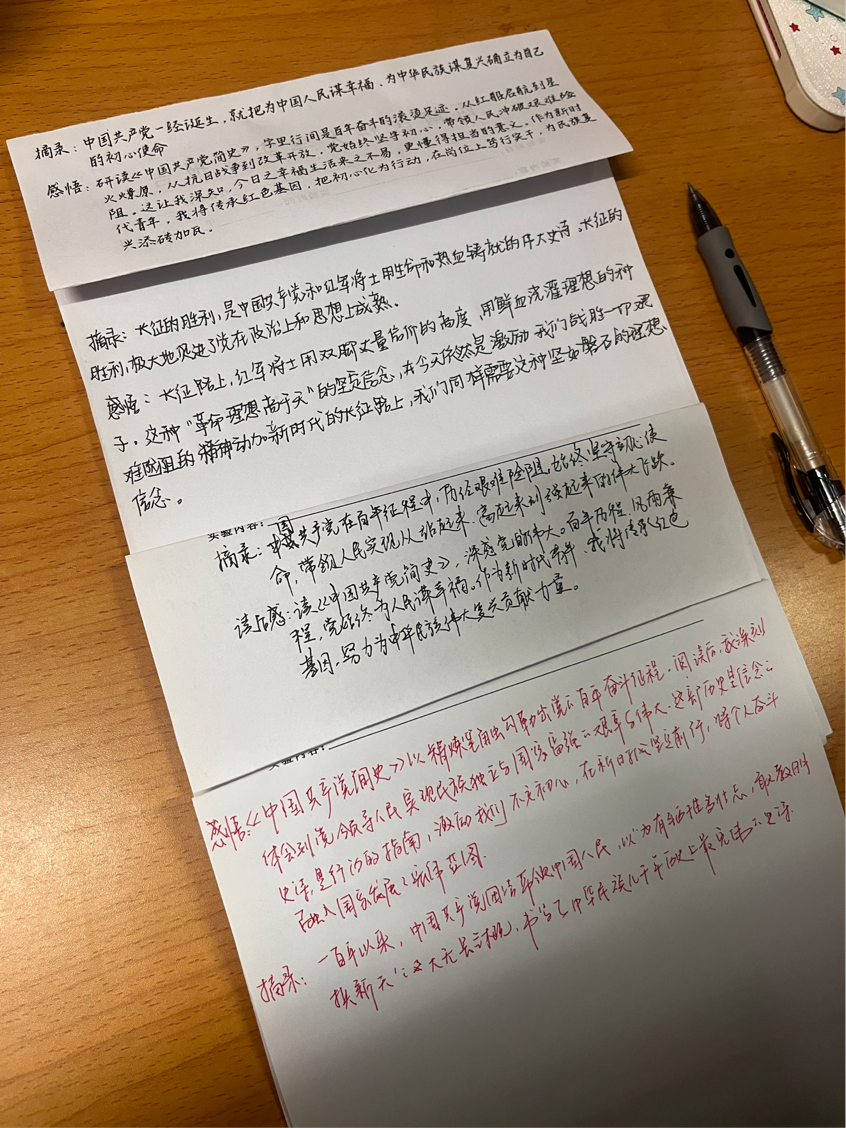 摘录：中国共产党一经诞生，就把为中国人民谋幸福、为中华民族谋复兴确立为自己
的初心使命
感悟：研读《中国共产党简史》，字里行间是百年奋斗的滚烫足迹。从红船启航到星
火燎原，从抗日战争到改革开放，党始终坚守初心，带领人民冲破艰难险
阻。这让我深知，今日之幸福生活来之不易，更懂得担当的意义。作为新时
代青年，我将传承红色基因，把初心化为行动，在岗位上笃行实干，为民族复
兴添砖加瓦。
摘录：长征的胜利，是中国共产党和红军将士用生命和热血铸就的伟大史诗。长征的
胜利，极大地促进了党在政治上和思想上成熟。
感悟：长征路上，红军将士用双脚丈量信仰的高度，用鲜血浇灌理想的种
子，这种"革命理想高于天"的坚贞信念，在今天依然是激励我们战胜一切艰
难险阻的精神动力。新时代的长征路上，我们同样需要这种坚如磐石的理想
信念。
实验内容：
国
摘录：中共产党在百年征程中，历经艰难险阻，始终坚守初心使
命，带领人民实现从站起来、富起来到强起来的伟大飞跃。
读后感：读《中国共产党简史》，深感党的伟大。百年历程，风雨兼
程，党始终为人民谋幸福。作为新时代青年，我将传承红色
基因，努力为中华民族伟大复兴贡献力量。
实验内容：
感悟：《中国共产党简史》以精炼笔触勾勒出党的百年奋斗征程。阅读后，我深刻
体会到党领导人民实现民族独立与国家富强的艰辛与伟大。这部历史是信念的
史诗，是行动的指南，激励我们不忘初心，在新时代坚定前行，将个人奋斗
融入国家发展的宏伟蓝图。
摘录：一百年以来，中国共产党团结带领中国人民，以"为有牺牲多壮志，敢教日月
换新天"的大无畏气概，书写了中华民族几千年历史上最恢宏的史诗